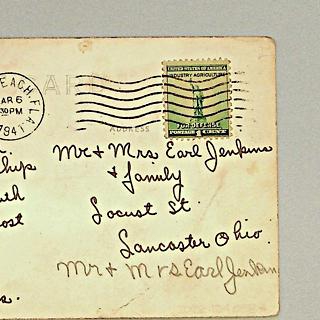 EACH, FLA.
MAR 6
30PM
1941
CARD
ADDRESS
UNITED STATES OF AMERICA
INDUSTRY AGRICULTURE
FOR DEFENSE
POSTAGE 1 CENT
Mr & Mrs Earl Jenkins
& family
Locust St.
Lancaster Ohio.
Mr & Mrs Earl Jenkin
ost